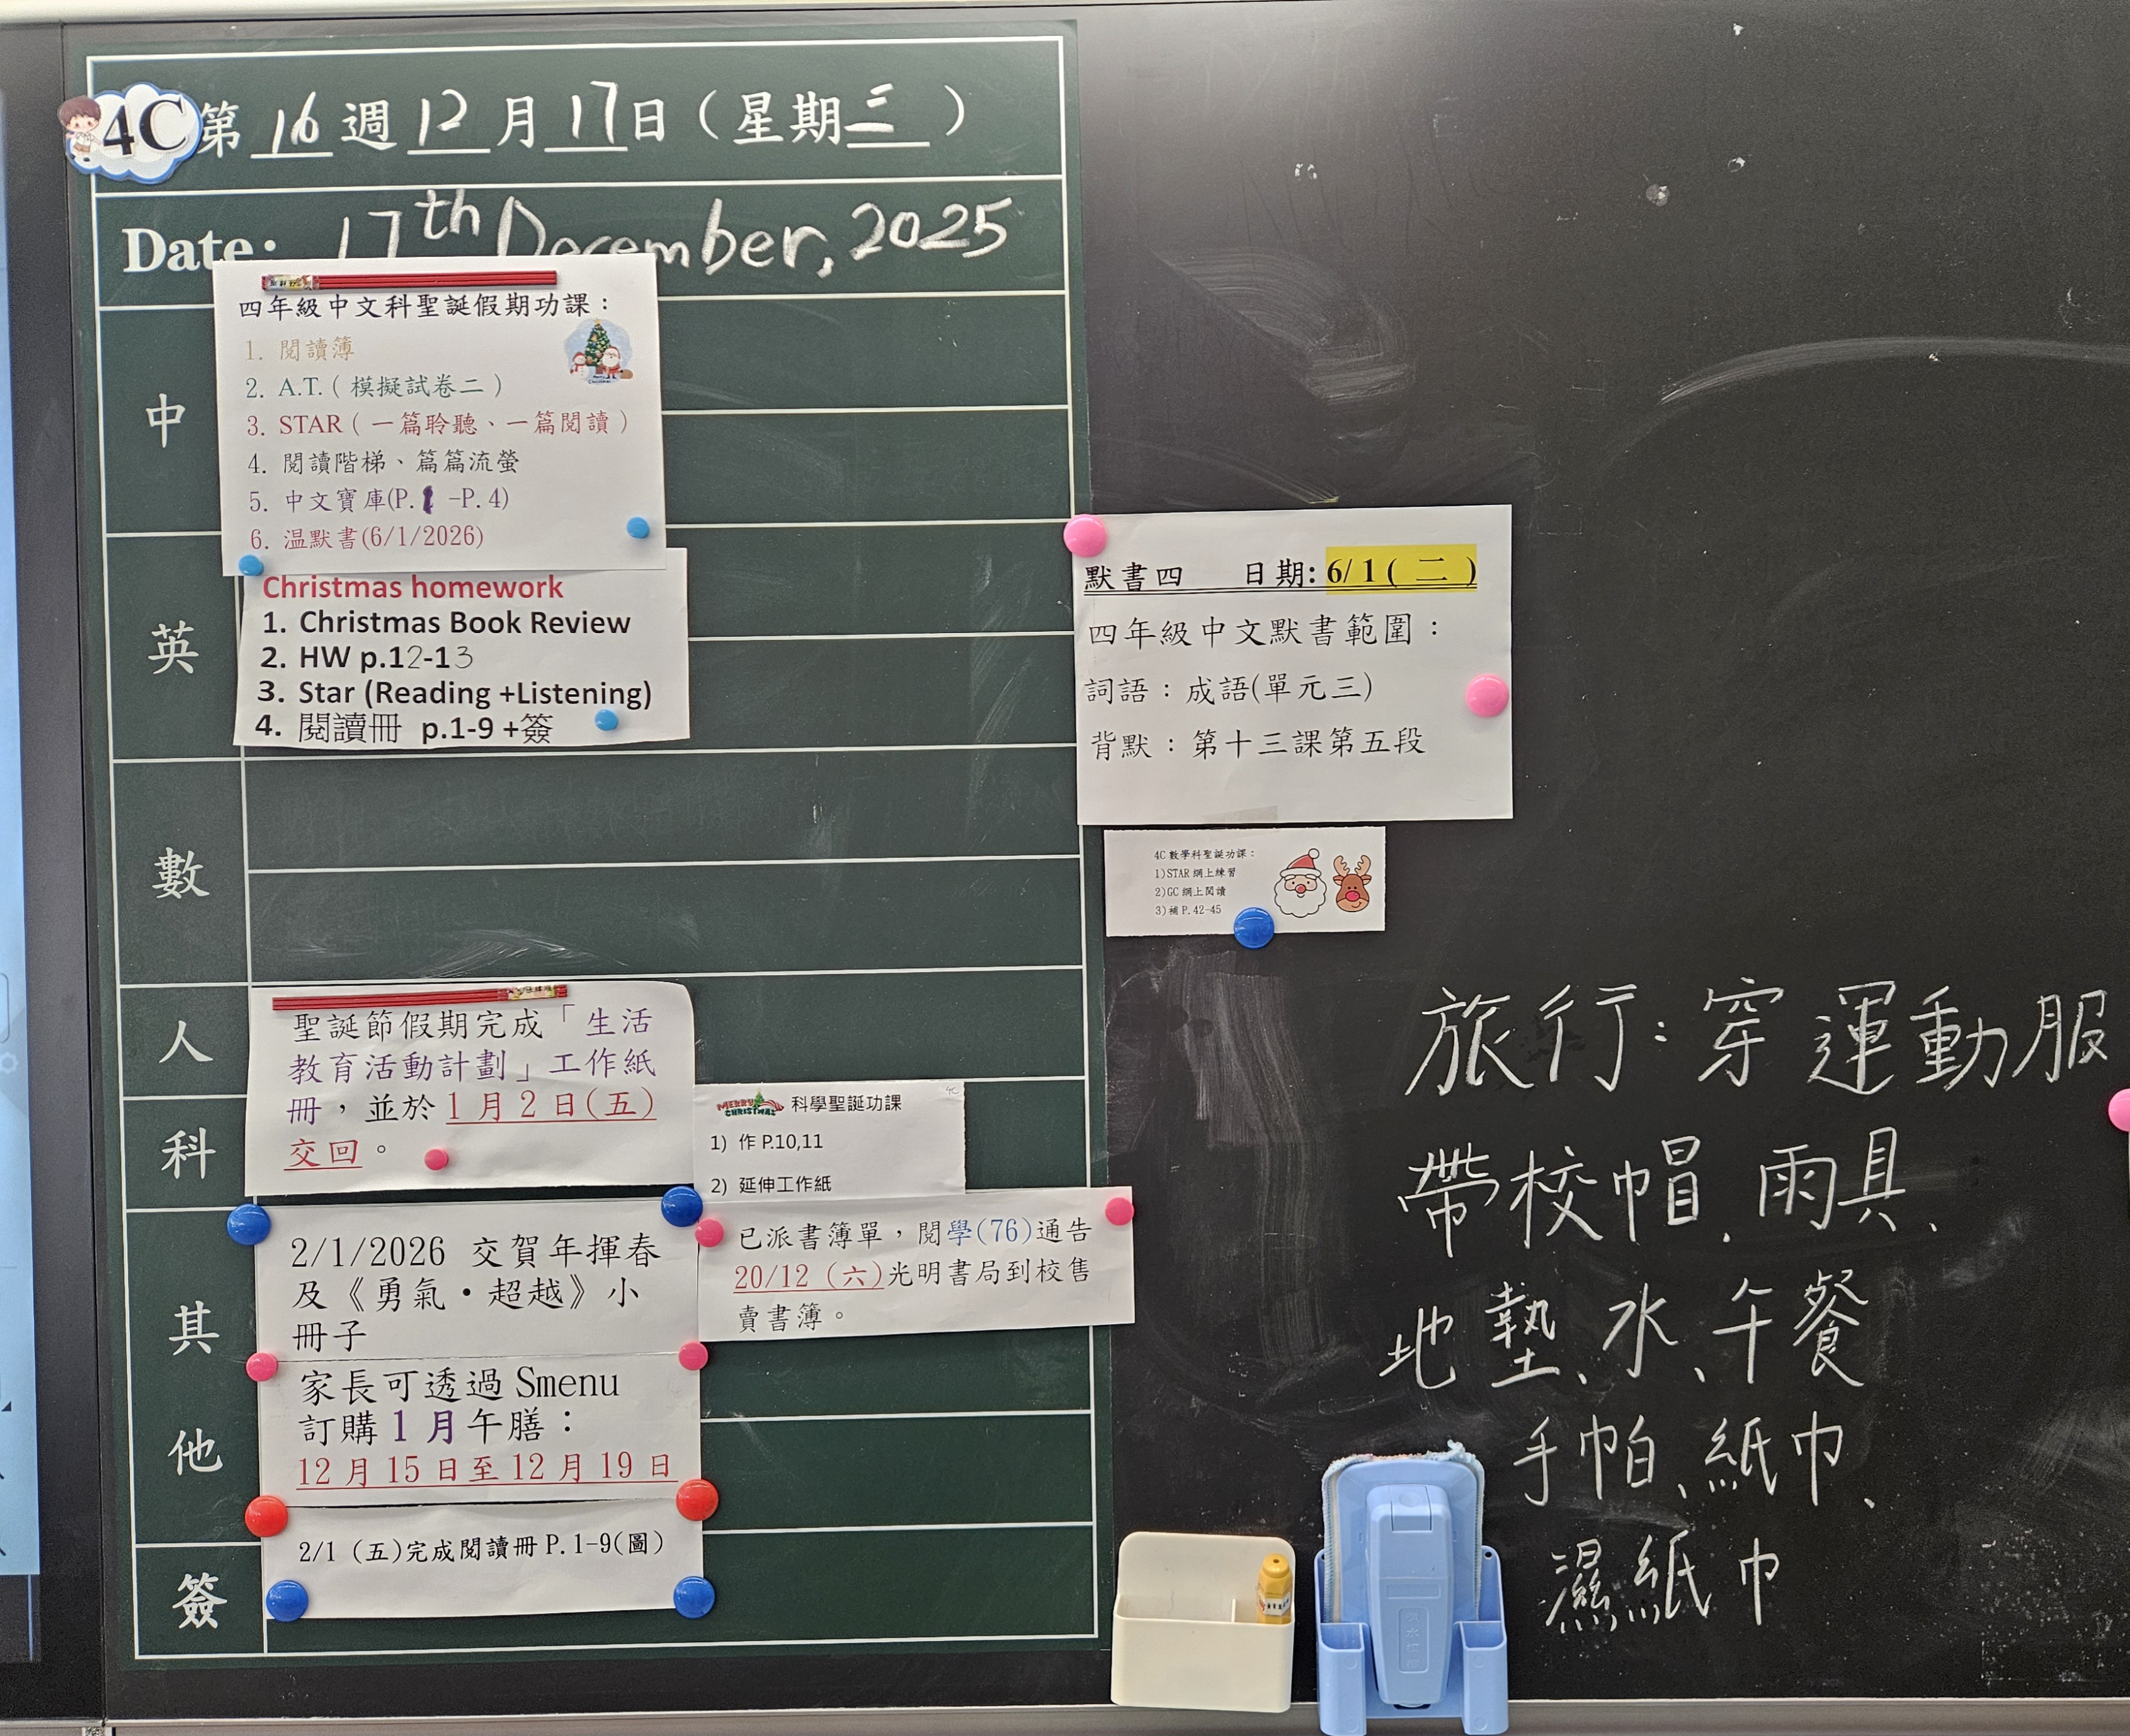 4C 第 16 週 12 月 17 日（星期三）
Date: 17th December, 2025
中
四年級中文科聖誕假期功課：
1. 閱讀簿
2. A.T.（模擬試卷二）
3. STAR（一篇聆聽、一篇閱讀）
4. 閱讀階梯、篇篇流螢
5. 中文寶庫(P.1 -P.4)
6. 温默書(6/1/2026)
英
Christmas homework
1. Christmas Book Review
2. HW p.12-13
3. Star (Reading +Listening)
4. 閱讀冊 p.1-9 +簽
數
人
科
聖誕節假期完成「生活
教育活動計劃」工作紙
冊，並於1月2日(五)
交回。
MERRY CHRISTMAS 科學聖誕功課
4C
1) 作 P.10,11
2) 延伸工作紙
其
他
2/1/2026 交賀年揮春
及《勇氣・超越》小
冊子
已派書簿單，閱學(76)通告
20/12（六)光明書局到校售
賣書簿。
家長可透過 Smenu
訂購1月午膳：
12月15日至12月19日
簽
2/1 (五)完成閱讀冊 P.1-9(圖)
默書四 日期: 6/1( 二 )
四年級中文默書範圍：
詞語：成語(單元三)
背默：第十三課第五段
4C 數學科聖誕功課：
1)STAR 網上練習
2)GC 網上閱讀
3)補 P.42-45
旅行：穿運動服
帶校帽、雨具、
地墊、水、午餐
手帕、紙巾、
濕紙巾